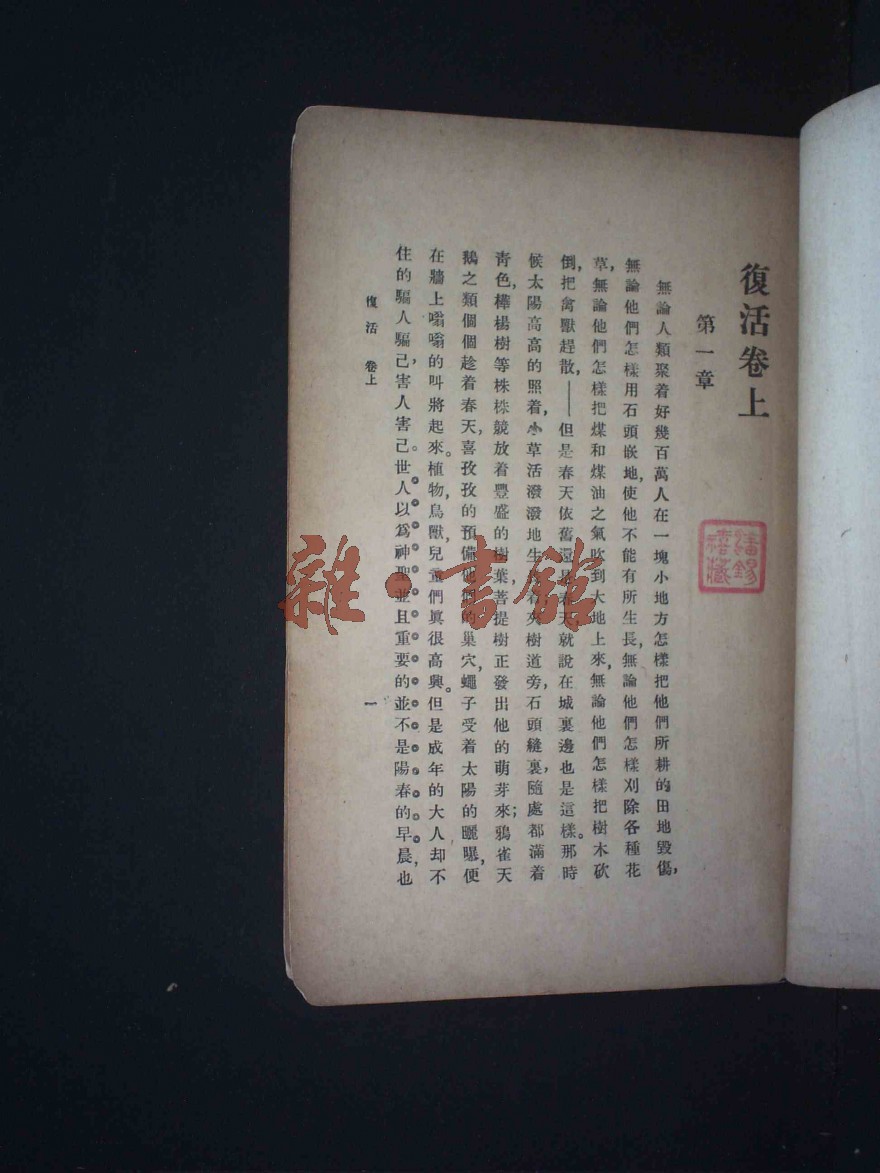 復活卷上
第一章
無論人類聚着好幾百萬人在一塊小地方怎樣把他們所耕的田地毀傷，
無論他們怎樣用石頭嵌地，使他不能有所生長，無論他們怎樣刈除各種花
草，無論他們怎樣把煤和煤油之氣吹到大地上來，無論他們怎樣把樹木砍
倒，把禽獸趕散，——但是春天依舊還是春天，就說在城裏邊也是這樣。那時
候太陽高高的照着，小草活潑潑地生着夾樹道旁，石頭縫裏，隨處都滿着
靑色，樺楊樹等株株競放着豐盛的樹葉菩提樹正發出他的萌芽來；鴉雀天
鵝之類個個趁着春天，喜孜孜的預備他們的巢穴，蠅子受着太陽的曬曝，便
在牆上嗡嗡的叫將起來。植物，鳥獸，兒童們眞很高興。但是成年的大人却不
住的騙人騙己，害人害己。世人以爲神聖並且重要的並不是陽春的早晨，也
復活 卷上
一
雜·書館